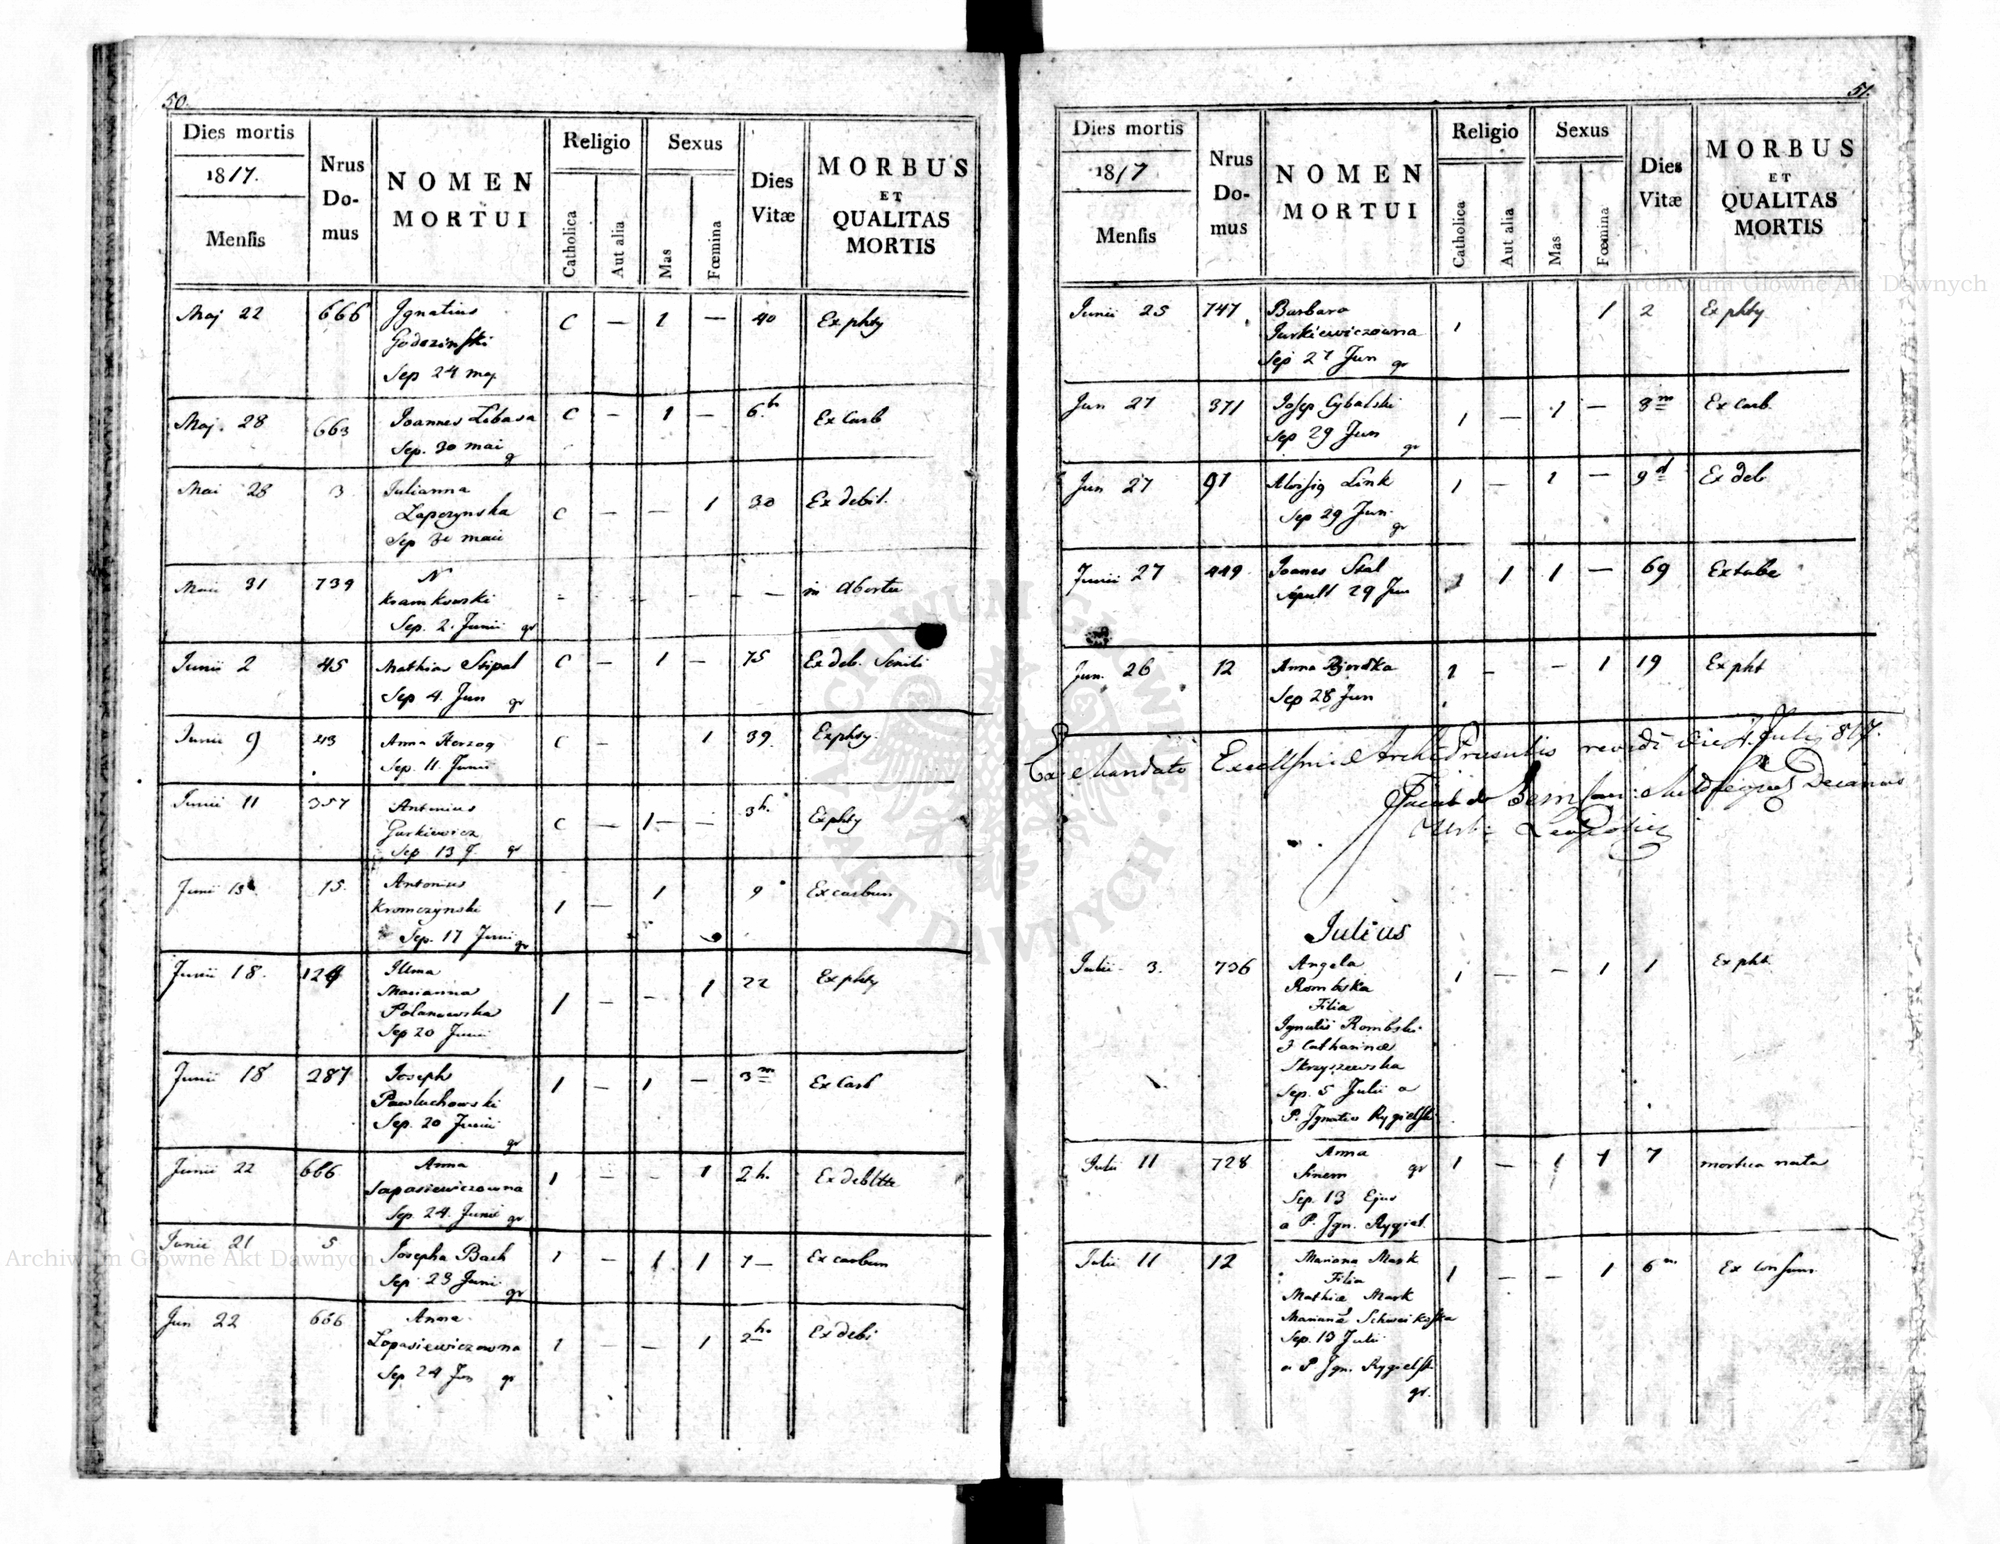 50.
Dies mortis
1817.
Mensis
Nrus
Do-
mus
NOMEN
MORTUI
Religio
Catholica
Aut alia
Sexus
Mas
Fœmina
Dies
Vitæ
MORBUS
ET
QUALITAS
MORTIS
Maj 22 666 Ignatius C — 1 — 40 Ex phty
Godozinski
Sep 24 maj
Maj. 28 663 Joannes Lebasa C — 1 — 6.h Ex Carb
Sep. 30 mai
g
Mai 28 3 Julianna
Laperzynska C — — 1 30 Ex debil.
Sep maii
Maii 31 739 N in abortu
Kramkowski
Sep. 2. Junii gr
Junii 2 45 Mathias Stipal C — 1 — 75 Ex deb. Senili
Sep 4. Jun gr
Junii 9 43 Anna Herzog C — 1 39 Ex phty.
Sep. 11. Junii
Junii 11 357 Antonius 3h.
Gurkiewicz C — 1 — — Ex phty
Sep. 13 J. gr
Junii 15 15. Antonius 1 9 Ex carbun
Kromczynski 1 —
Sep. 17 Junii gr
Junii 18. 124 Illma
Marianna 1 — — 1 22 Ex phty
Polanowska
Sep 20 Junii
Junii 18 287 Joseph 1 — 1 — 3m Ex Carb
Pawluchowski
Sep. 20 Junii
gr
Junii 22 666 Anna 1 — — 1 2h. Ex deblttte
Lapasiewiczowna
Sep. 24. Junii gr
Junii 21 5 Josepha Bach 1 — 1 1 7 — Ex carbun
Sep 23 Junii
gr
Jun 22 666 Anna
Lopasiewiczowna 1 — — 1 2h. Ex debi
Sep 24 Jun gr
51.
Dies mortis
1817
Mensis
Nrus
Do-
mus
NOMEN
MORTUI
Religio
Catholica
Aut alia
Sexus
Mas
Fœmina
Dies
Vitæ
MORBUS
ET
QUALITAS
MORTIS
Junii 25 747 Barbara 1 2 Ex phty
Jurkiewiczowna 1
Sep 27 Jun gr
Jun 27 371 Josep Cybalski 1 — 1 — 3m Ex Carb.
Sep 29 Jun
gr
Jun 27 91 Aloisig Link 1 — 1 — 9d Ex deb
Sep 29 Jun.
gr
Junii 27 449 Joanes Stal 1 1 1 — 69 Ex tabe
Sepult 29 Jun
Jun. 26 12 Anna 1 — — 1 19 Ex pht
Sep 28 Jun
Ex Mandato Archi Presulis die 4. Julii 817.
Decanus
Julius
Julii 3. 736 Angela 1 — — 1 1 Ex pht
Rombska
Filia
Ignatii Rombski
& Catharinæ
Skrzyszewska
Sep. 5 Julii a
P. Ignatio Rygielski
Julii 11 728 Anna 1 — 1 1 7 mortua nata
Sinem gr
Sep. 13 Ejus
a P. Ign. Rygiel.
Julii 11 12 Mariana Mark 1 — — 1 6m Ex Consum
Filia
Mathiæ Mark
Mariana
Sep. 13 Julii
a P Ign. Rygielsk
gr.
Archiwum Głowne Akt Dawnych
Archiwum Głowne Akt Dawnych
ARCHIWUM GŁÓWNE AKT DAWNYCH